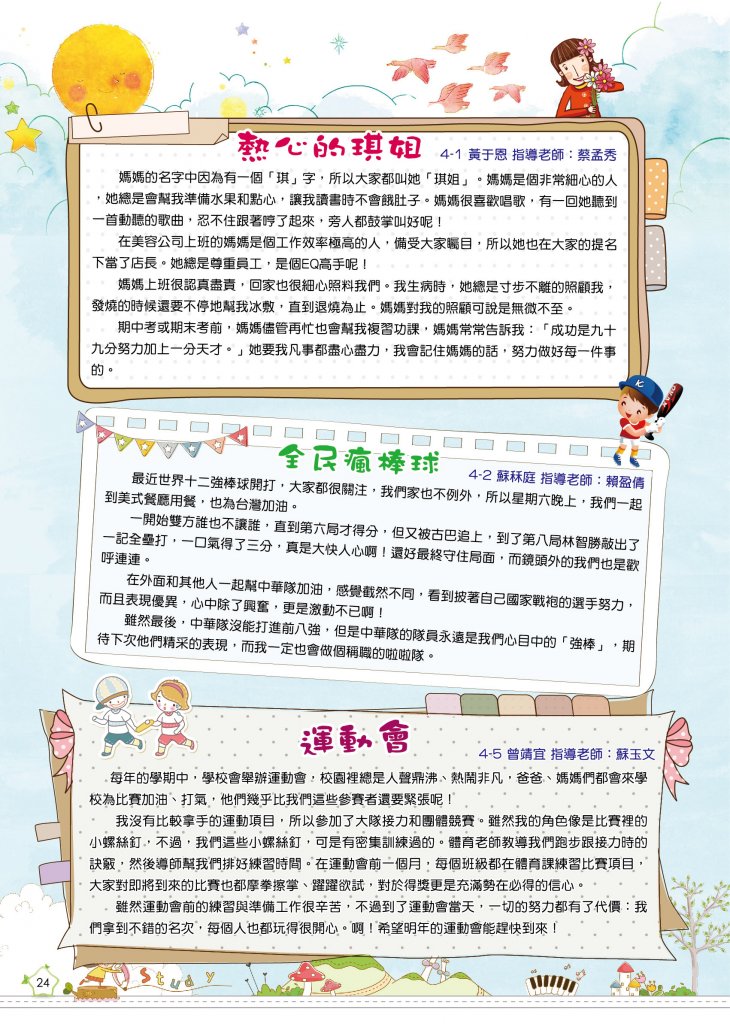 熱心的琪姐 4-1 黃于恩 指導老師：蔡孟秀
媽媽的名字中因為有一個「琪」字，所以大家都叫她「琪姐」。媽媽是個非常細心的人
，她總是會幫我準備水果和點心，讓我讀書時不會餓肚子。媽媽很喜歡唱歌，有一回她聽到
一首動聽的歌曲，忍不住跟著哼了起來，旁人都鼓掌叫好呢！
在美容公司上班的媽媽是個工作效率極高的人，備受大家矚目，所以她也在大家的提名
下當了店長。她總是尊重員工，是個EQ高手呢！
媽媽上班很認真盡責，回家也很細心照料我們。我生病時，她總是寸步不離的照顧我，
發燒的時候還要不停地幫我冰敷，直到退燒為止。媽媽對我的照顧可說是無微不至。
期中考或期末考前，媽媽儘管再忙也會幫我複習功課，媽媽常常告訴我：「成功是九十
九分努力加上一分天才。」她要我凡事都盡心盡力，我會記住媽媽的話，努力做好每一件事
的。
全民瘋棒球 4-2 蘇秝庭 指導老師：賴盈倩
最近世界十二強棒球開打，大家都很關注，我們家也不例外，所以星期六晚上，我們一起
到美式餐廳用餐，也為台灣加油。
一開始雙方誰也不讓誰，直到第六局才得分，但又被古巴追上，到了第八局林智勝敲出了
一記全壘打，一口氣得了三分，真是大快人心啊！還好最終守住局面，而鏡頭外的我們也是歡
呼連連。
在外面和其他人一起幫中華隊加油，感覺截然不同，看到披著自己國家戰袍的選手努力，
而且表現優異，心中除了興奮，更是激動不已啊！
雖然最後，中華隊沒能打進前八強，但是中華隊的隊員永遠是我們心目中的「強棒」，期
待下次他們精采的表現，而我一定也會做個稱職的啦啦隊。
運動會 4-5 曾靖宜 指導老師：蘇玉文
每年的學期中，學校會舉辦運動會，校園裡總是人聲鼎沸、熱鬧非凡，爸爸、媽媽們都會來學
校為比賽加油、打氣，他們幾乎比我們這些參賽者還要緊張呢！
我沒有比較拿手的運動項目，所以參加了大隊接力和團體競賽。雖然我的角色像是比賽裡的
小螺絲釘，不過，我們這些小螺絲釘，可是有密集訓練過的。體育老師教導我們跑步跟接力時的
訣竅，然後導師幫我們排好練習時間。在運動會前一個月，每個班級都在體育課練習比賽項目，
大家對即將到來的比賽也都摩拳擦掌、躍躍欲試，對於得獎更是充滿勢在必得的信心。
雖然運動會前的練習與準備工作很辛苦，不過到了運動會當天，一切的努力都有了代價：我
們拿到不錯的名次，每個人也都玩得很開心。啊！希望明年的運動會能趕快到來！
24
Study